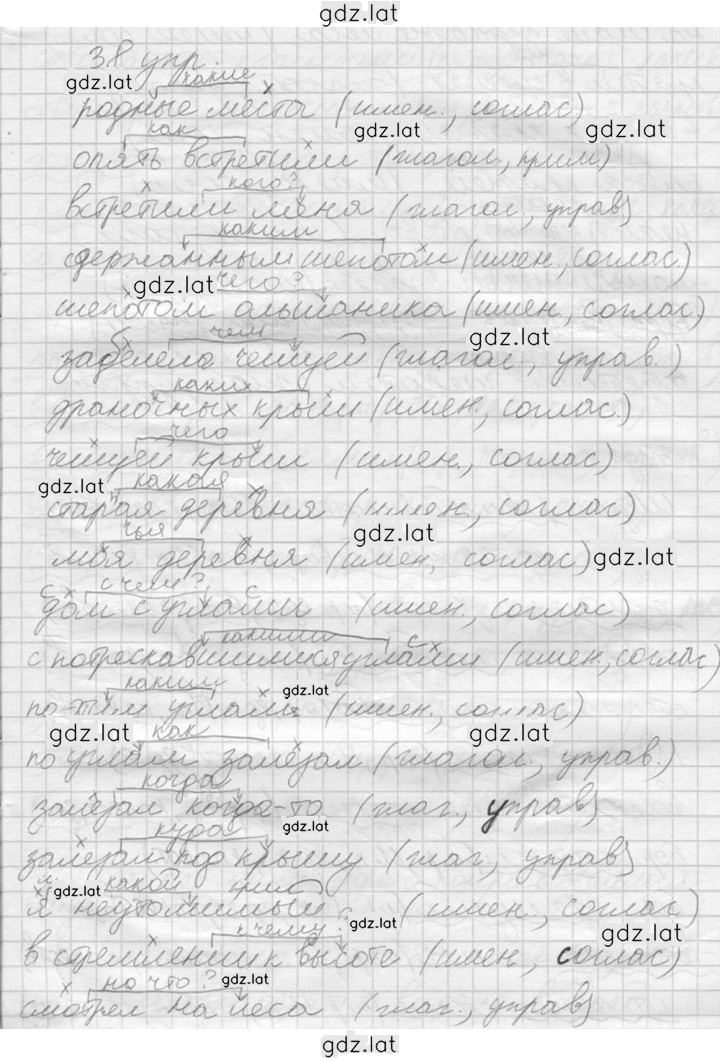 gdz.lat
38 упр
gdz.lat какие
родные места (имен., соглас)
как gdz.lat gdz.lat
опять встретили (глагол, прим)
кого?
встретили меня (глагол, управ)
каким
сдержанным шепотом (имен., соглас)
gdz.lat чего?
шепотом ольшаника (имен, соглас)
чем gdz.lat
забелела чешуей (глагол., управ.)
каких
драночных крыш (имен., соглас.)
чего
чешуей крыш (имен., соглас)
gdz.lat какая
старая деревня (имен., соглас)
чья gdz.lat
моя деревня (имен, соглас) gdz.lat
с чем?
дом с углами (имен., соглас)
какими
с потрескавшимися углами (имен., соглас)
каким gdz.lat
по тем углам (имен, соглас)
gdz.lat как gdz.lat
по углам залезал (глагол, управ.)
когда
залезал когда-то (глаг., управ)
куда gdz.lat
залезал под крышу (глаг, управ)
gdz.lat какой
я неутомимый (имен, соглас)
к чему? gdz.lat gdz.lat
в стремлении к высоте (имен, соглас)
на что? gdz.lat
смотрел на леса (глаг., управ)
gdz.lat